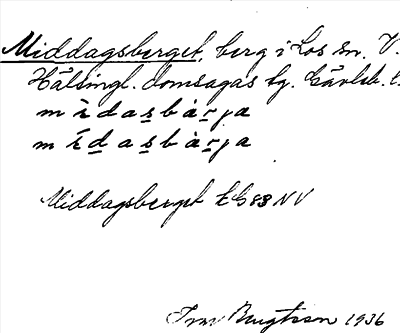 Middagsberget, berg i Los sn. V.
Hälsingl. domsagas tg. Gävleb. l.
m ì d a s b à r j a
m í d a s b à r j a
Middagsberget GS 83 NV
Ivar Bengtsson 1936